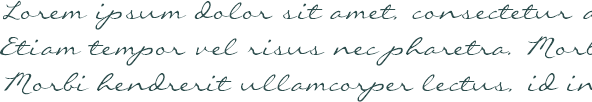 Lorem ipsum dolor sit amet, consectetur a
Etiam tempor vel risus nec pharetra. Morb
Morbi hendrerit ullamcorper lectus, id in